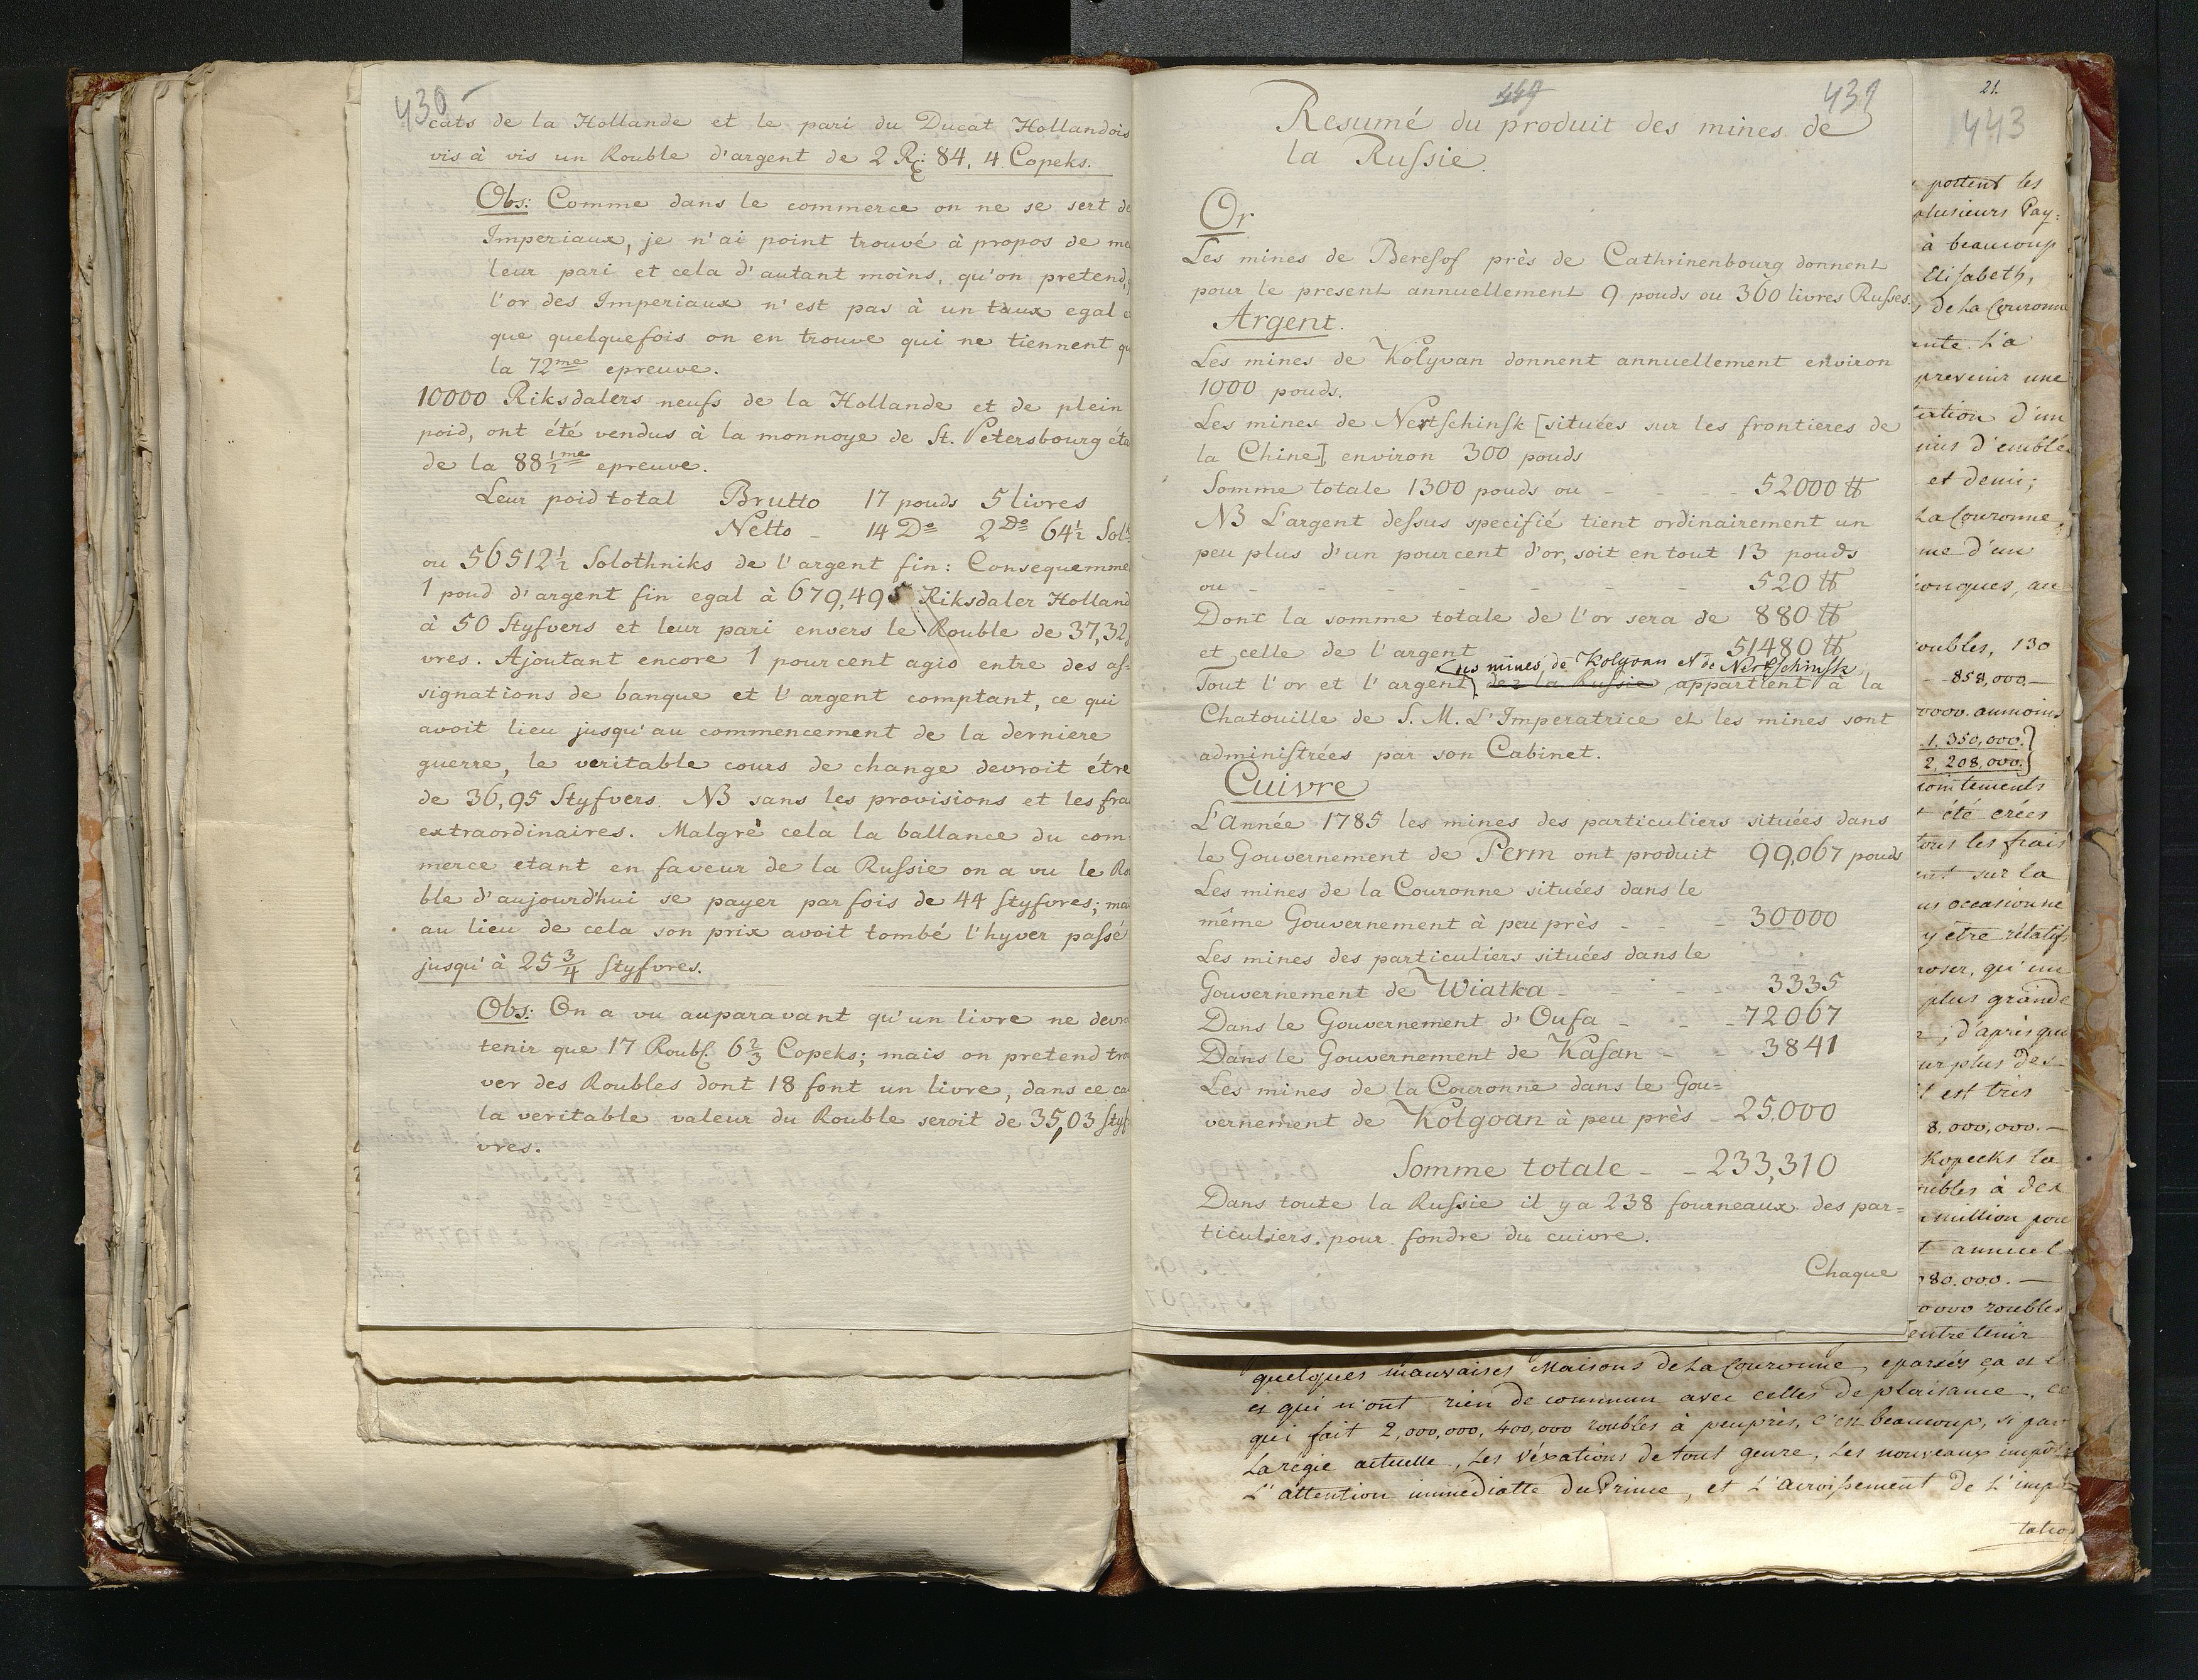 430
cats de la Hollande et le pari du Ducat Hollandois
vis à vis un Rouble d'argent de 2 R: 84, 4 Copeks.
Obs: Comme dans le commerce on ne se sert de
Imperiaux, je n'ai point trouvé à propos de me
leur pari et cela d'autant moins, qu'on pretend,
l'or des Imperiaux n'est pas à un taux egal e
que quelquefois on en trouve qui ne tiennent qu
la 72me epreuve.
10000 Riksdalers neufs de la Hollande et de plein
poid, ont été vendus à la monnoye de St. Petersbourg éta
de la 88 1/2 me epreuve.
Leur poid total Brutto 17 pouds 5 livres
Netto - 14 Do 2 Do 64 1/2 Sol:
ou 56512 1/2 Solothniks de l'argent fin: Consequemme
1 poud d'argent fin egal à 679,495 Riksdaler Holland
à 50 Styfvers et leur pari envers le Rouble de 37,32
vres. Ajoutant encore 1 pourcent agio entre des as-
signations de banque et l'argent comptant, ce qui
avoit lieu jusqu'au commencement de la derniere
guerre, le veritable cours de change devroit étre
de 36,95 Styfvers. NB sans les provisions et les fra
extraordinaires. Malgré cela la ballance du com
merce etant en faveur de la Russie on a vu le Ro
ble d'aujourd'hui se payer par fois de 44 Styfvres; ma
au lieu de cela son prix avoit tombé l'hyver passé
jusqu'à 25 3/4 Styfvres.
Obs: On a vu auparavant qu'un livre ne devra
tenir que 17 Roubl. 6 2/3 Copeks; mais on pretend tro
ver des Roubles dont 18 font un livre, dans ce ca
la veritable valeur du Rouble seroit de 35,03 Styf
vres.
449 431
Resumé du produit des mines de
la Russie.
Or
Les mines de Beresof près de Cathrinenbourg donnent
pour le present annuellement 9 pouds ou 360 livres Russes.
Argent.
Les mines de Kolyvan donnent annuellement environ
1000 pouds.
Les mines de Nertschinsk [situées sur les frontieres de
la Chine], environ 300 pouds
Somme totale 1300 pouds ou - - - 52000 ℔
NB L'argent dessus specifié tient ordinairement un
peu plus d'un pourcent d'or, soit en tout 13 pouds
ou - - - - - - - 520 ℔
Dont la somme totale de l'or sera de 880 ℔
et celle de l'argent 51480 ℔
des mines de Kolyvan et de Nertschinsk
Tout l'or et l'argent de la Russie appartient à la
Chatouille de S. M. L'Imperatrice et les mines sont
administrées par son Cabinet.
Cuivre
L'année 1785 les mines des particuliers situées dans
le Gouvernement de Perm ont produit 99,067 pouds
Les mines de la Couronne situées dans le
même Gouvernement à peu près - - - 30000
Les mines des particuliers situées dans le
Gouvernement de Wiatka - - - 3335
Dans le Gouvernement d'Oufa - - - 72067
Dans le Gouvernement de Kasan - - 3841
Les mines de la Couronne dans le Gou=
vernement de Kolgoan à peu près - 25,000
Somme totale - - 233,310
Dans toute la Russie il y a 238 fourneaux des par=
ticuliers pour fondre du cuivre.
Chaque
21.
443
portent les
plusieurs Pay=
à beaucoup
Elisabeth,
de La Couronne
L'a
prevenir une
d'un
d'emblé
et demi;
La Couronne,
me d'un
au
roubles, 130
- 858,000.-
aumoins
1,350,000.
2,208,000.
été crées
tous les frais
sur la
occasionne
y être rélatif
qu'un
plus grande
d'après que
plus des
est tres
8,000,000.-
Kopecks la
à des
million pou
annuel
80.000.-
roubles
entretenir
quelques mauvaises Maisons de La Couronne, eparsés ça et l
et qui n'ont rien de commun avec celles de plaisance, ce
qui fait 2,000,000, 400,000 roubles à peuprès, c'en beaucoup, si par
La régie actuelle, Les Véxations de tout genre, Les nouveaux impôt
L'attention immédiatte du Prince, et L'acroissement de L'impo
tatio